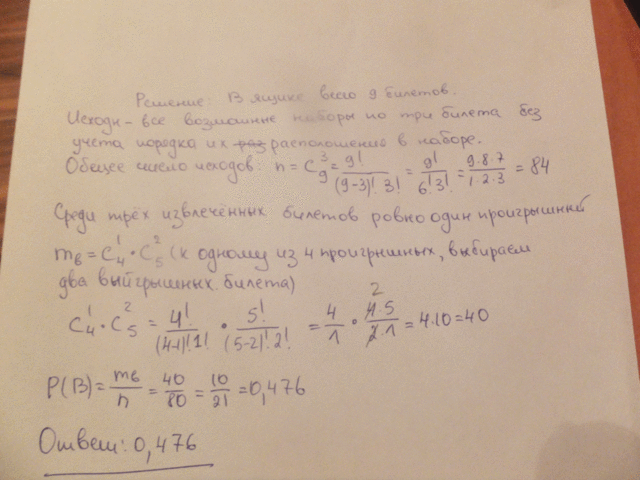 Решение: В ящике всего 9 билетов.
Исходы - все возможные наборы по три билета без
учета порядка их раз расположение в наборе.
Общее число исходов: n = C₉³ = 9!/((9-3)! 3!) = 9!/(6! 3!) = (9·8·7)/(1·2·3) = 84
Среди трёх извлечённых билетов ровно один проигрышный
mв = C₄¹ · C₅² (к одному из 4 проигрышных, выбираем
два выйгрышных билета)
C₄¹ · C₅² = 4!/((4-1)! 1!) · 5!/((5-2)! 2!) = 4/1 · (4·5)/(2·1) 2 = 4·10 = 40
P(B) = mв/n = 40/80 = 10/21 = 0,476
Ответ: 0,476